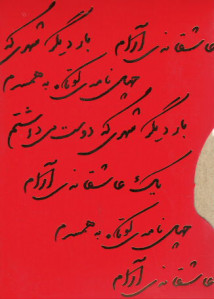 بار دیگر شهری که عاشقانه‌ی آرام
چهل نامه‌ی کوتاه به همسرم
بار دیگر شهری که دوست می‌داشتم
یک عاشقانه‌ی آرام
چهل نامه‌ی کوتاه به همسرم
عاشقانه‌ی آرام